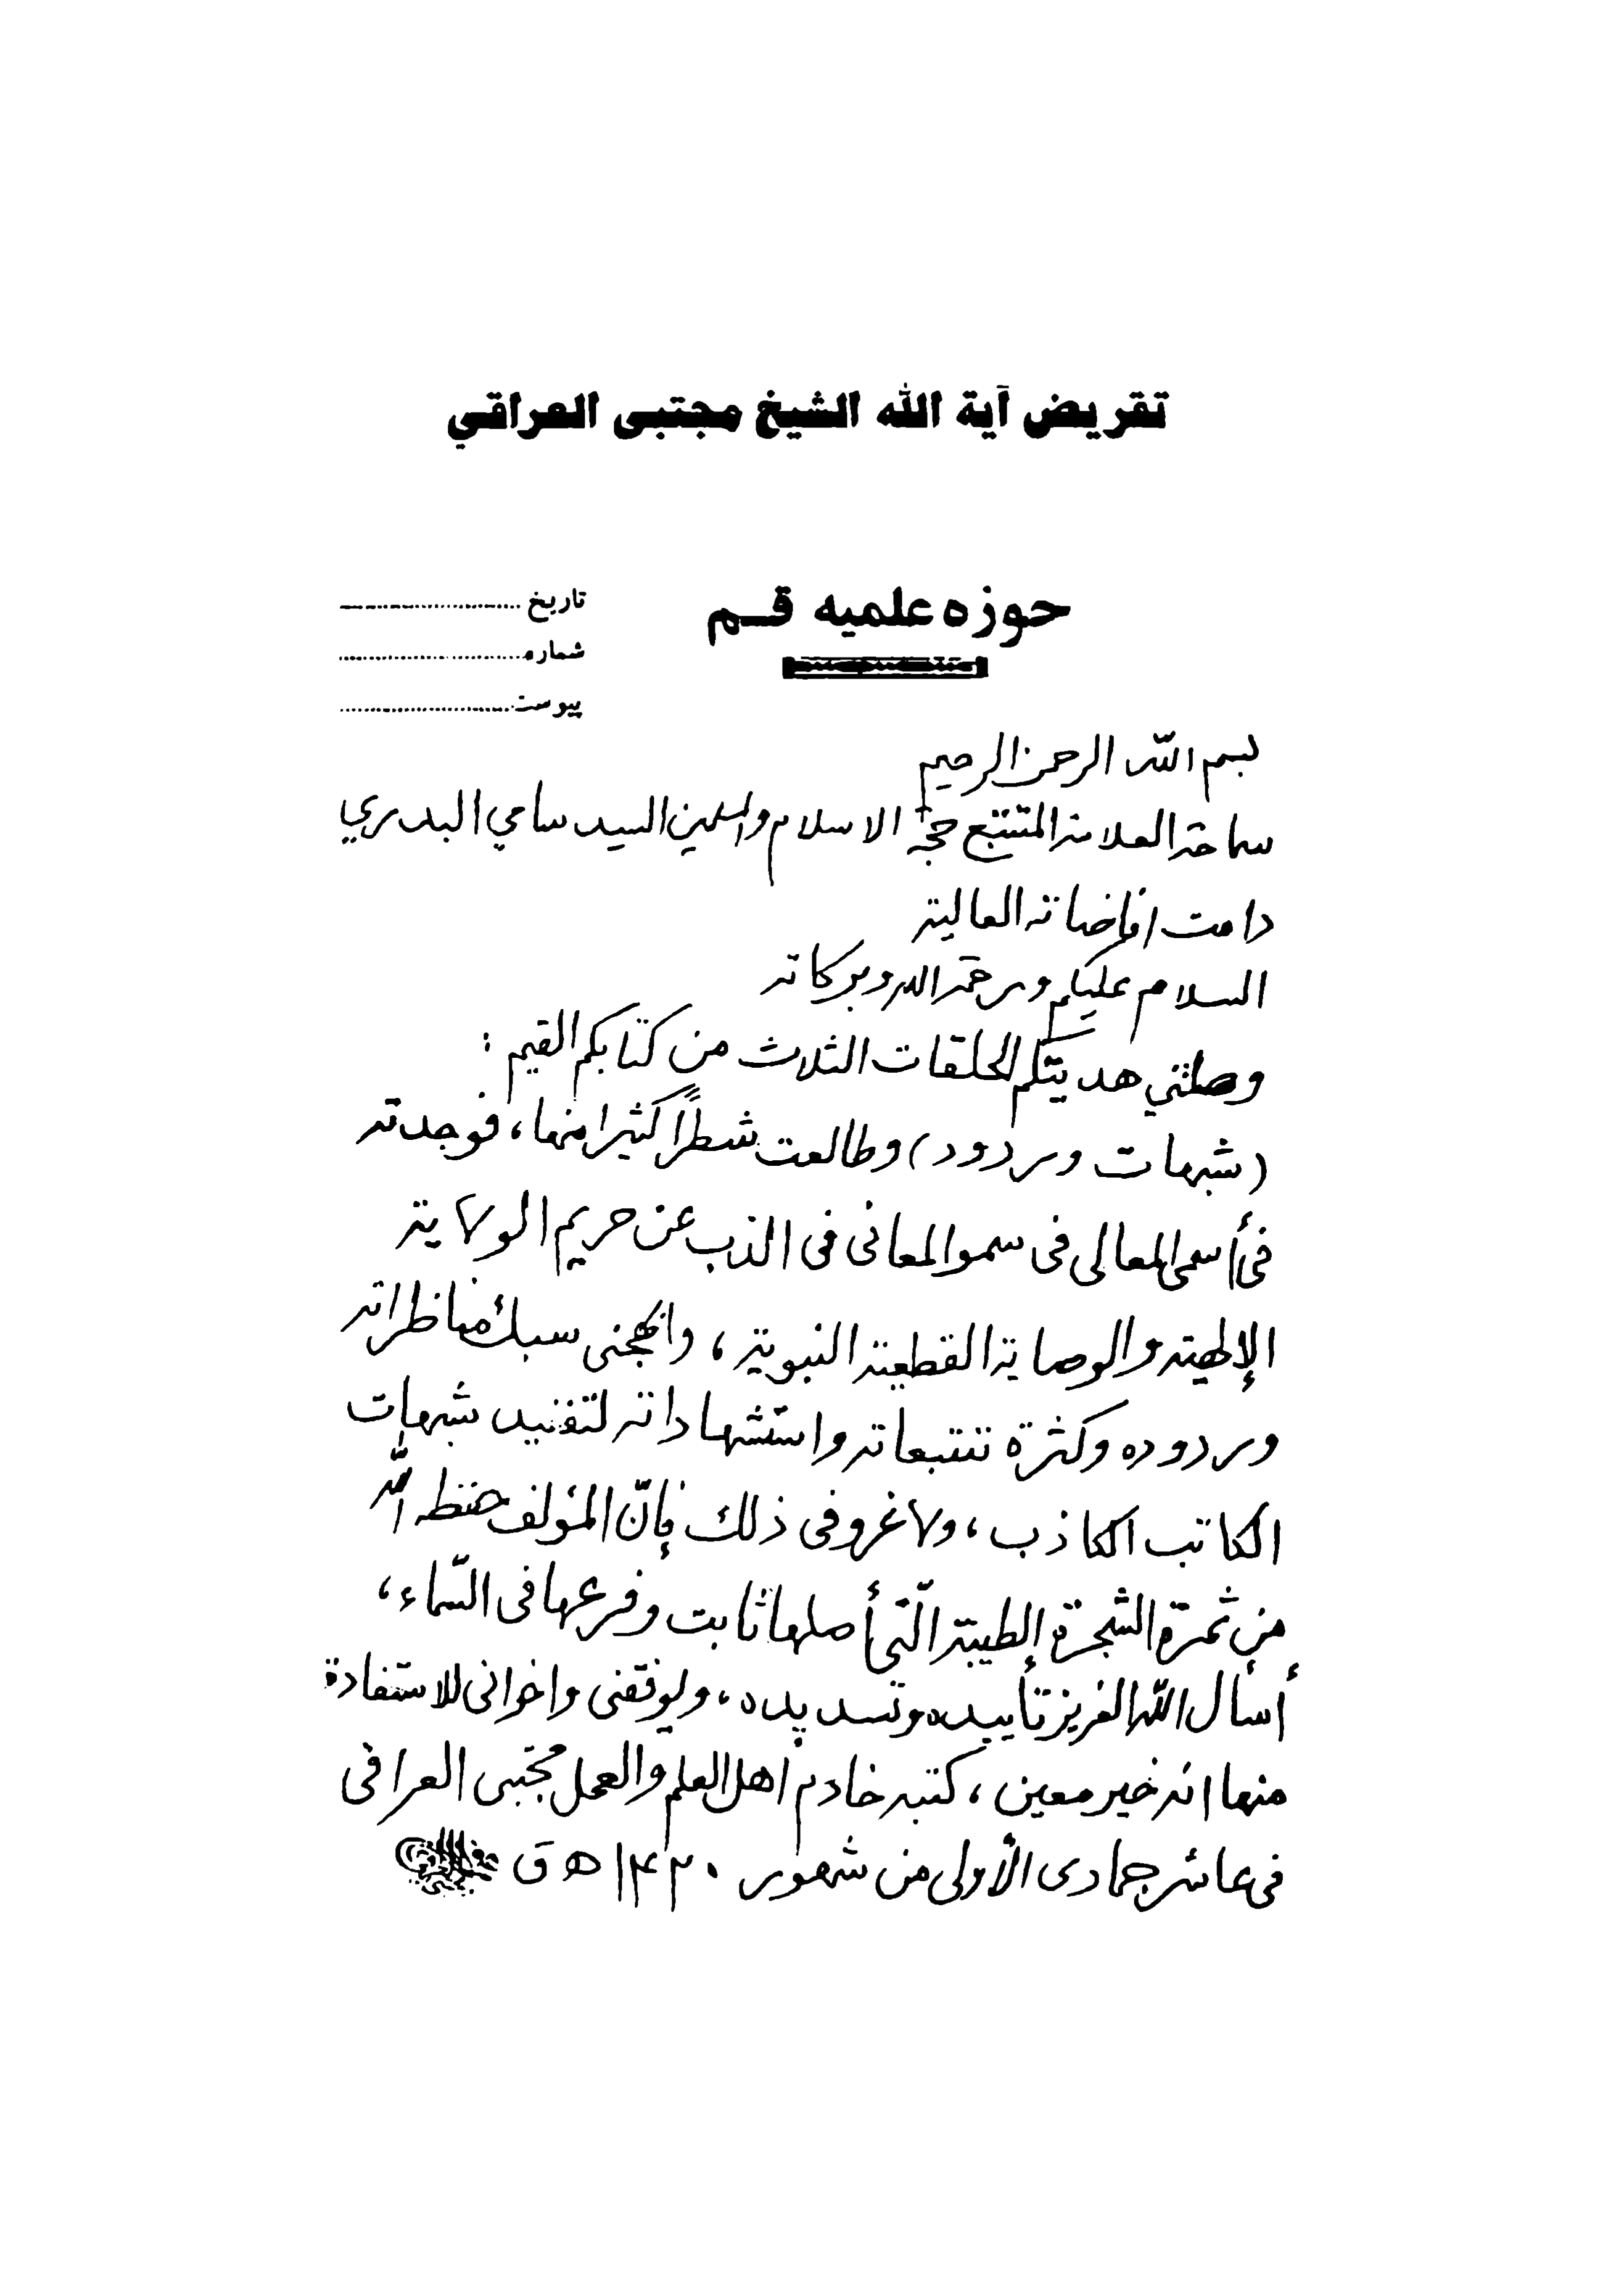 تقريض آية الله الشيخ مجتبى العراقي
حوزه علميه قم
تاريخ
شماره
پيوست
بسم الله الرحمن الرحيم
سماحة العلامة المتتبع حجة الاسلام والمسلمين السيد سامي البدري
دامت افاضاته العالية
السلام عليكم ورحمة الله وبركاته
وصلتني هديتكم الحلقات الثلاث من كتابكم القيم :
(شبهات وردود) وطالعت شطراً كثيرا منها، فوجدته
في أسمى المعالى فى سمو المعانى فى الذب عن حريم الولاية
الإلهية والوصاية القطعية النبوية ، وابهجنى سبك مناظراته
وردوده وكثرة تتبعاته واستشهاداته لتفنيد شبهات
الكاتب الكاذب ، ولا غرو فى ذلك فإنّ المؤلف حفظه الله
من ثمرة الشجرة الطيبة الّتى أصلها ثابت وفرعها فى السّماء ،
أسأل الله العزيز تأييده وتسديده ، وليوفقنى واخوانى للاستفادة
منها انه خير معين ، كتبه خادم اهل العلم والعمل مجتبى العراقى
فى عاشر جمادى الأولى من شهور ۱۴۲۰ ه ق